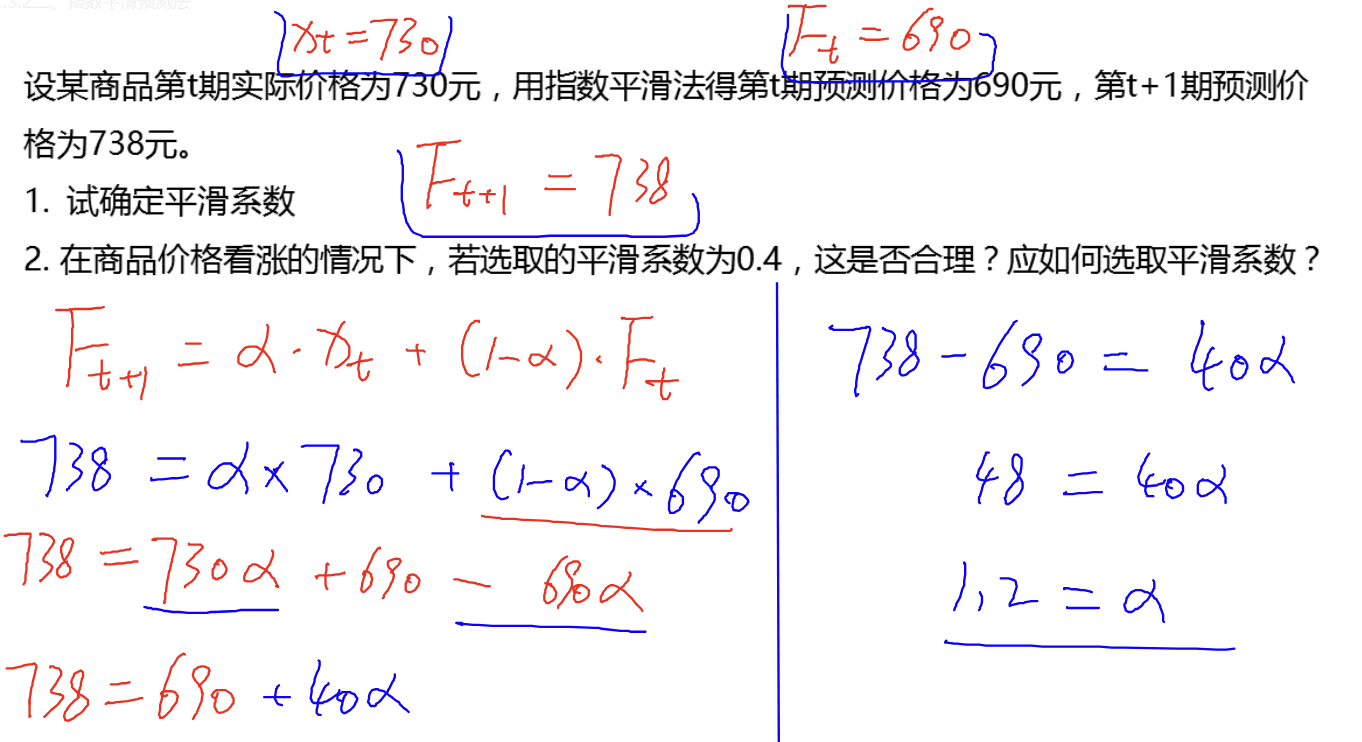 1.3.2二、指数平滑预测法
xt=730 Ft=690
设某商品第t期实际价格为730元，用指数平滑法得第t期预测价格为690元，第t+1期预测价
格为738元。
Ft+1 = 738
1. 试确定平滑系数
2. 在商品价格看涨的情况下，若选取的平滑系数为0.4，这是否合理？应如何选取平滑系数？
Ft+1 = α·xt + (1-α)·Ft
738 = α×730 + (1-α)×690
738 = 730α + 690 - 690α
738 = 690 + 40α
738-690 = 40α
48 = 40α
1.2 = α